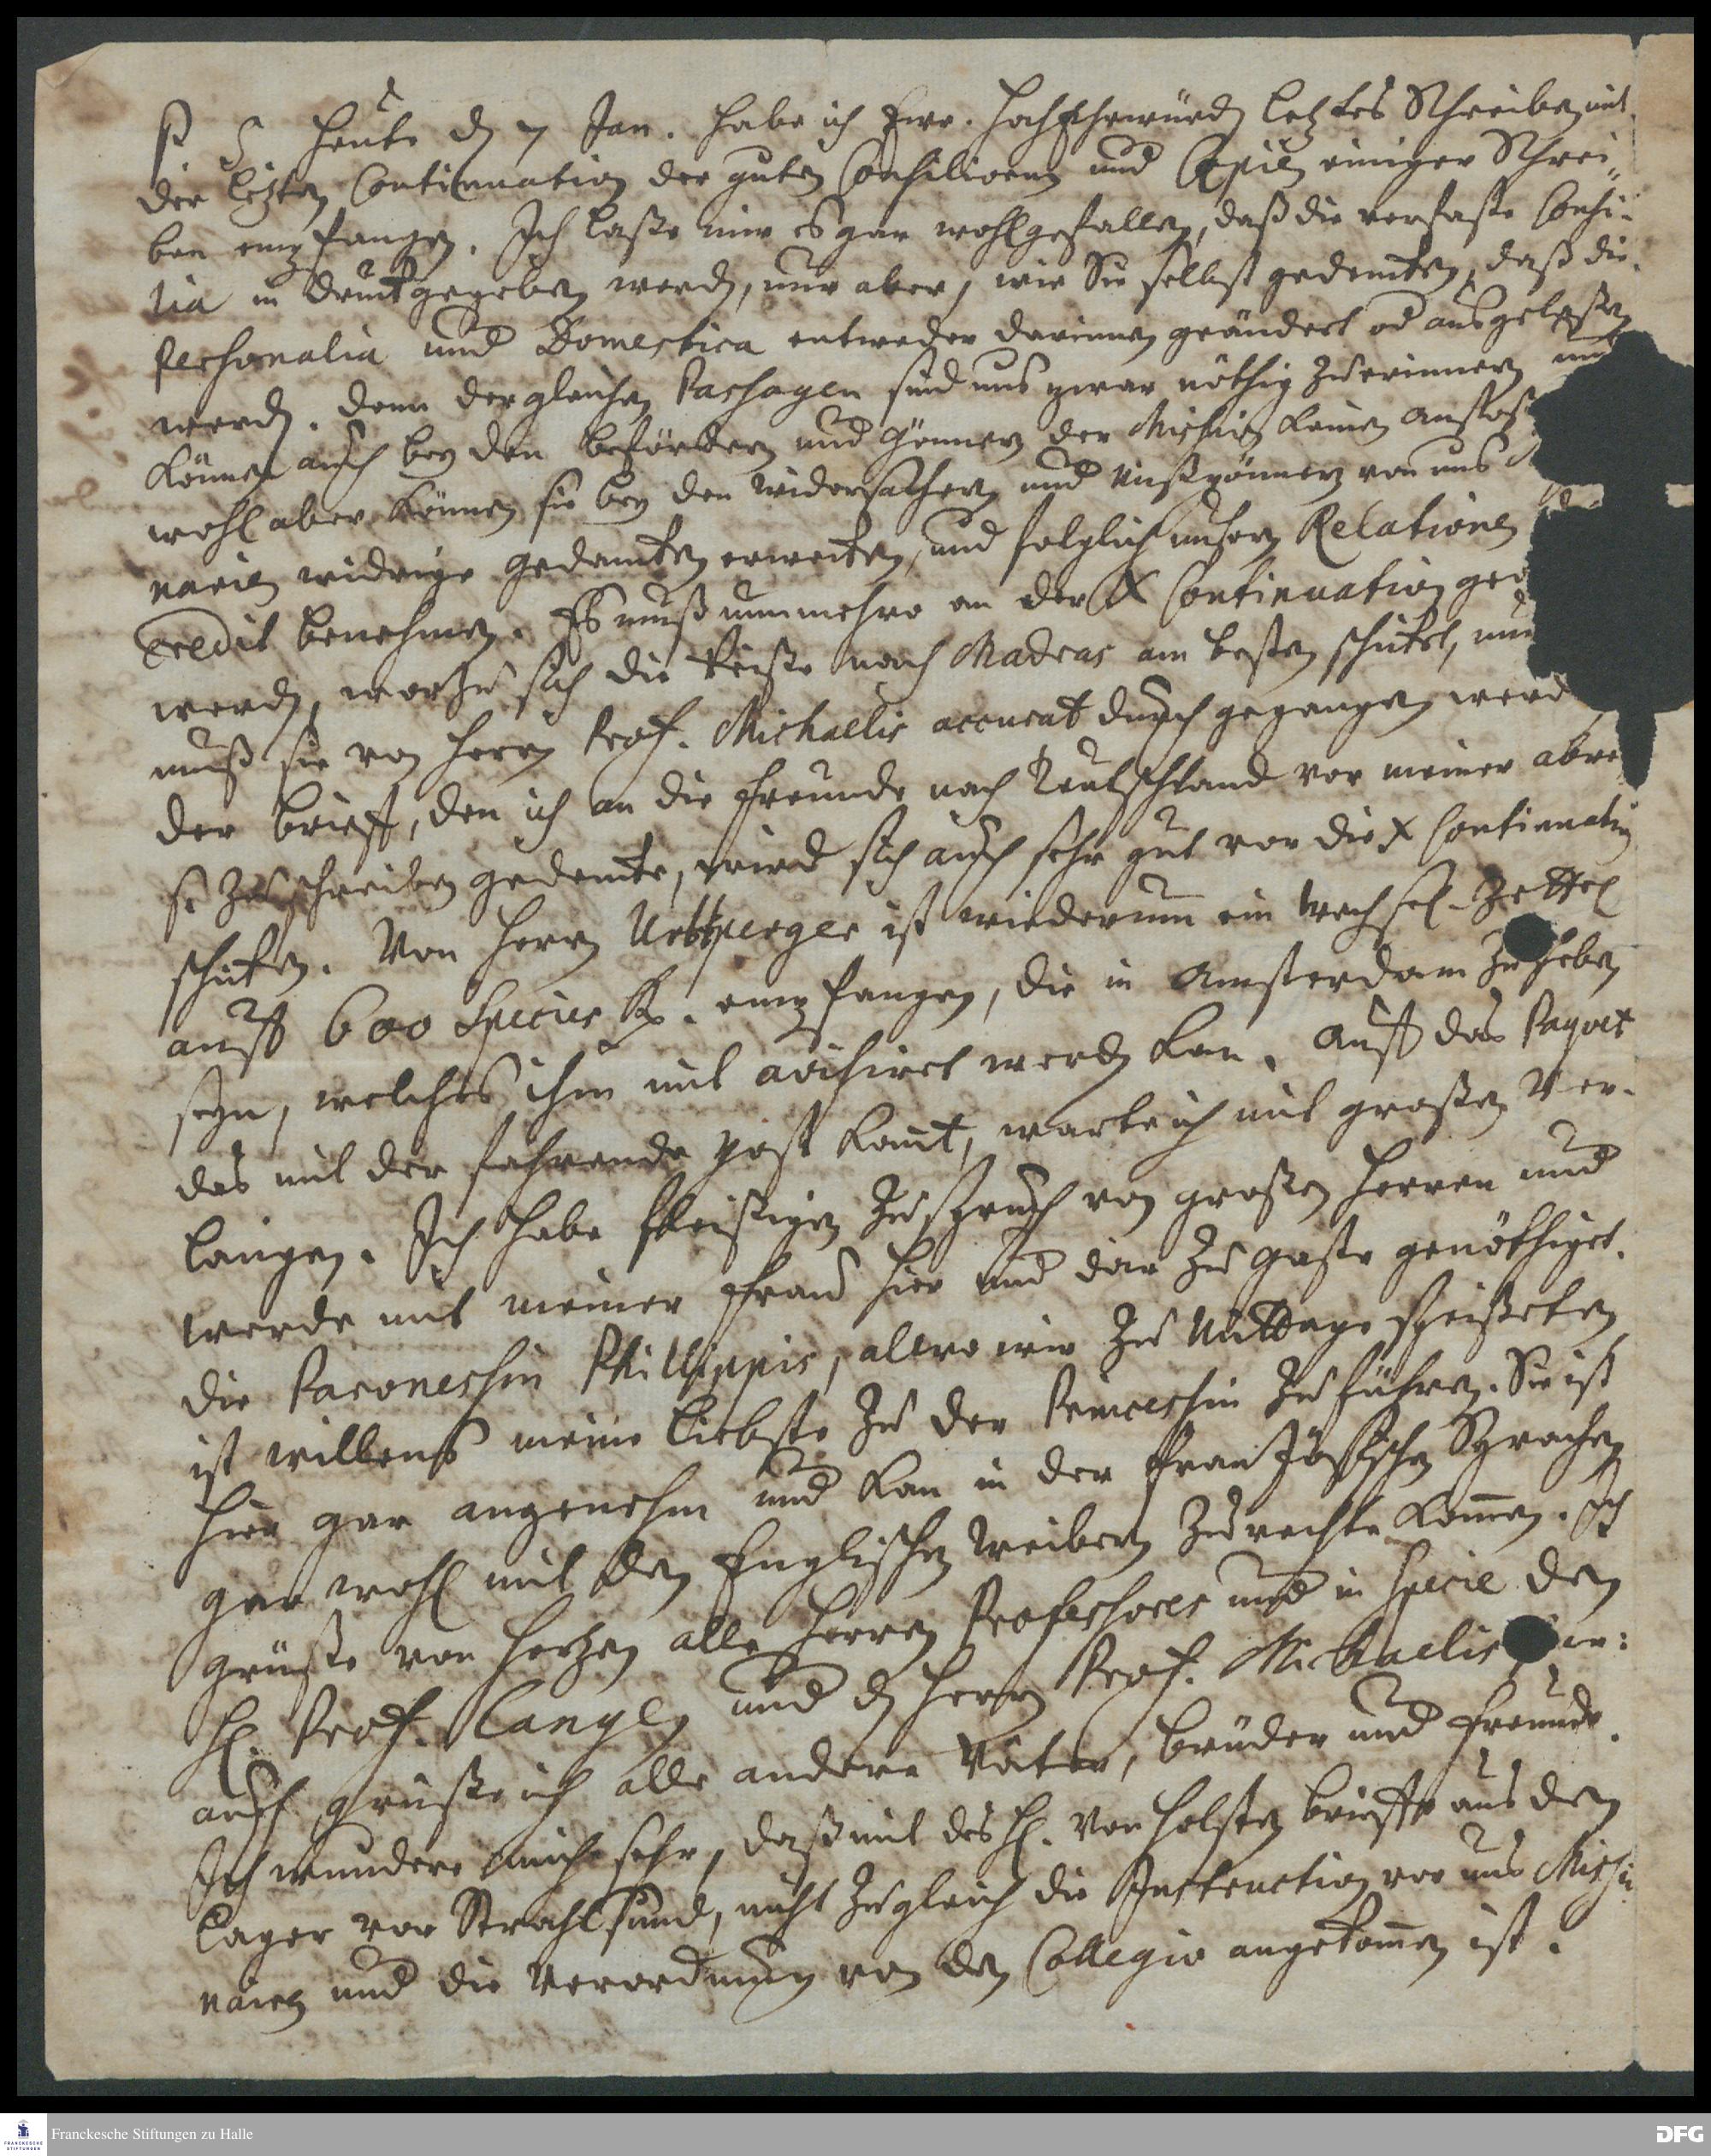 P S. Heute d 7 Jan. habe ich Ewr. HochEhrwürd letztes Schreiben mit
der letzten Continuation der guten Consiliorum und Copien einiger Schrei-
ben empfangen. Ich laße mir es gar wohl gefallen, daß die verfaste Consi-
lia in druck gegeben werden, nur aber, wie Sie selbst gedencken, daß die
Personalia und Domestica entweder darinnen geändert od ausgelaßen
werden. denn dergleichen Passagen sind uns zwar nöthig zu erinnern und
können auch bey den befördern und Gönnern der Mission keinen anstoß
wohl aber können sie bey den widersachern und Mißgönnern von uns
narien widrige gedancken erwecken, und folglich unsern Relationen
Credit benehmen. Es muß nunmehro an der X Continuation
werden, worzu sich die Reise nach Madras am besten schicket, nur
muß sie von Herrn Prof. Michaelis accurat durch gegangen werd
der brieff, den ich an die Freunde nach Teutschland vor meiner abrei
se zu schreiben gedencke, wird sich auch sehr gut vor die X Continuation
schicken. Von Herrn Urlsperger ist wiederumm ein Wechsel-Zettel
auff 600 Species empfangen, die in Amsterdam zu heben
seyn, welches ihm mit avisiret werden kan. Auff das Paquet
das mit der fahrende Post komt, warte ich mit großen Ver-
langen. Ich habe fleißigen Zuspruch von großen Herren und
werde mit meiner Frau hier und dar zu Gaste genöthiget.
die Baronessin Phillippis, allwo wir zu Mittage speißeten
ist willens meine Liebste zu der Princessin zu führen. Sie ist
hier gar angenehm und kan in der Frantzösischen Sprachen
gar wohl mit den Englischen Weibern zu rechte kommen. Ich
grüße von Hertzen alle Herren Professores und in specie den
H. Prof. Langen und d Herrn Prof. Michaelis
auch grüße ich alle andere Väter, brüder und Freunde.
Ich wundere mich sehr, daß mit des H. von Holsten brieffe aus dem
Lager vor Strahlsund, nicht zugleich die Instruction vor uns Missio
narien und die Verordnung von dem Collegio angekommen ist.
Franckesche Stiftungen zu Halle
DFG